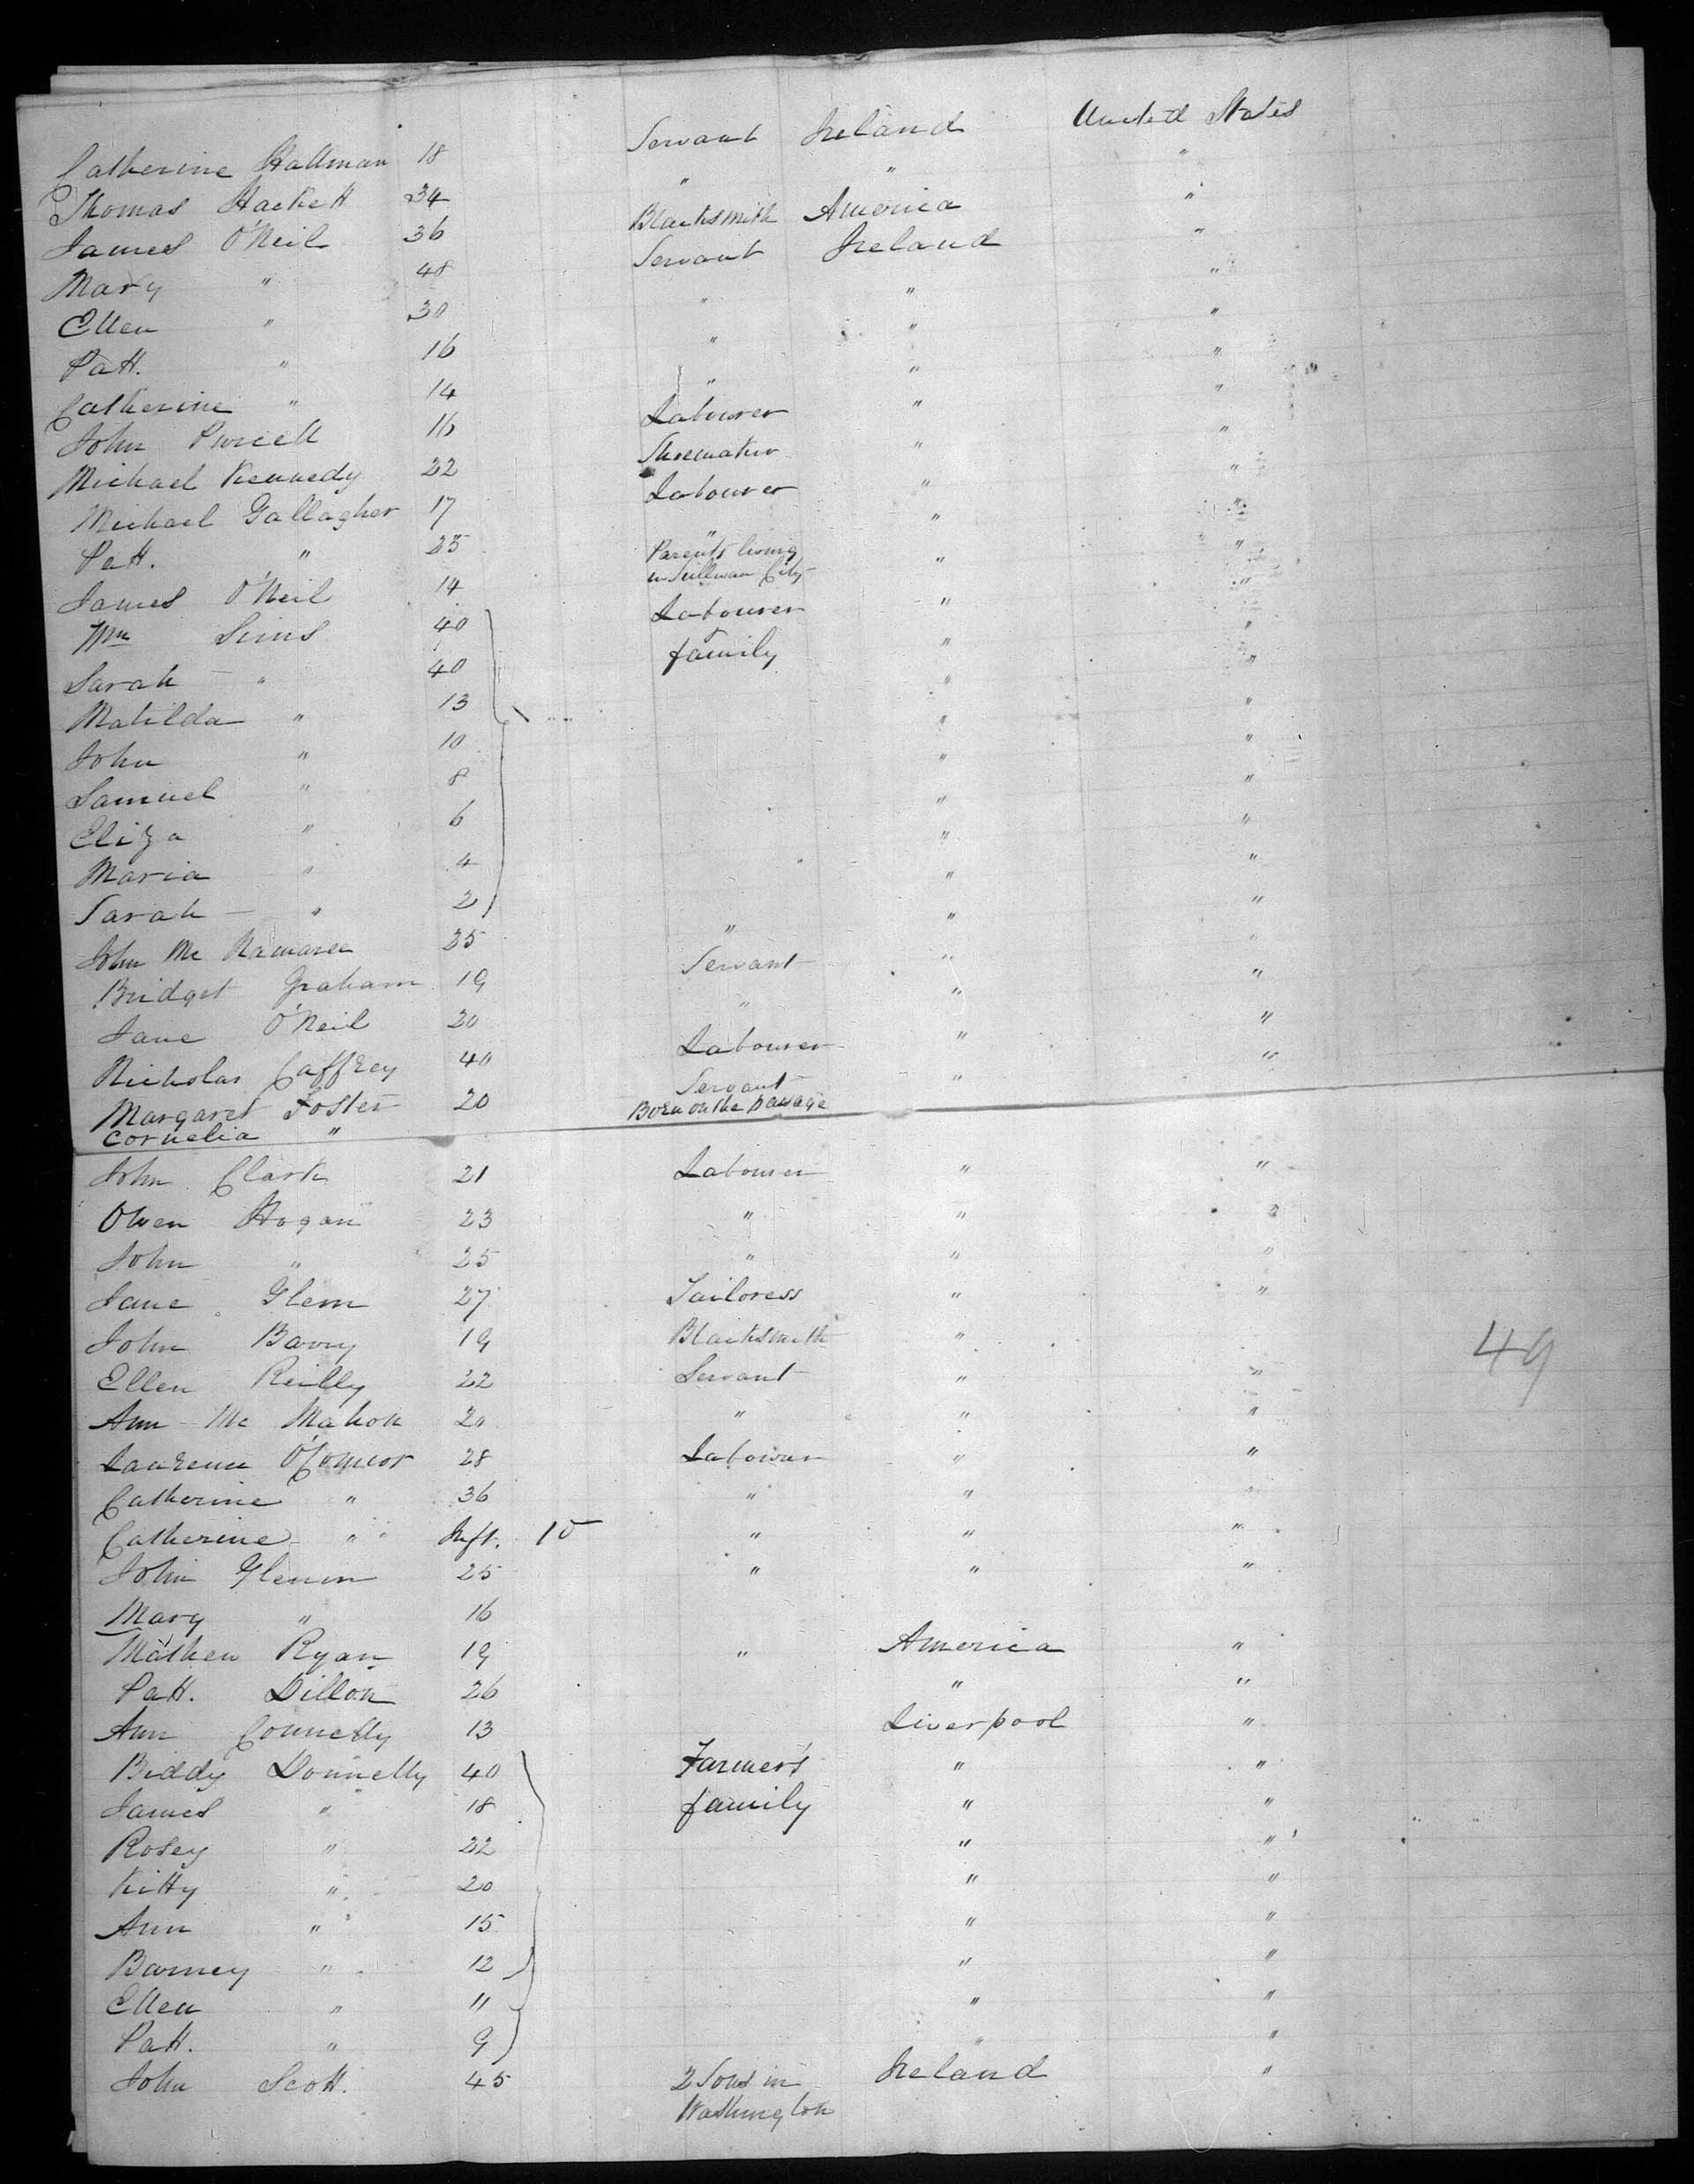 Catherine Hallman 18 Servant Ireland United States
Thomas Hackett 34 " " "
James O'Neil 36 Blacksmith America "
Mary " 48 Servant Ireland "
Ellen " 30 " " "
Patt. " 16 " " "
Catherine " 14 " " "
John Purcell 16 Labourer " "
Michael Kennedy 22 Shoemaker " "
Michael Gallagher 17 Labourer " "
Patt. " 25 " " "
James O'Neil 14 Parents living " "
in City
Wm Sims 40 Labourer " "
Sarah " 40 family " "
Matilda " 13 " "
John " 10 " "
Samuel " 8 " "
Eliza " 6 " "
Maria " 4 " "
Sarah " 2 " "
John Mc 25 " " "
Bridget Graham 19 Servant " "
Jane O'Neil 20 " " "
Nicholas Caffrey 40 Labourer " "
Margaret Foster 20 Servant " "
Cornelia " Born on the passage
John Clark 21 Labourer " "
Owen Hogan 23 " " "
John " 25 " " "
Jane Glenn 27 Tailoress " "
John Barry 19 Blacksmith "
Ellen Reilly 22 Servant " "
Ann Mc Mahon 20 " " "
Laurence O'Connor 28 Labourer " "
Catherine " 36 " " "
Catherine " Inft. 10 " " "
John Glennn 25 " " "
Mary " 16
Mathew Ryan 19 " America "
Patt. Dillon 26 " "
Ann Connelly 13 Liverpool "
Biddy Donnelly 40 Farmer's " "
James " 18 family " "
Rosey " 22 " "
Kitty " 20 " "
Ann " 15 " "
Barney " 12 " "
Ellen " 11 " "
Patt. " 9 " "
John Scott. 45 2 Sons in Ireland "
Washington
49